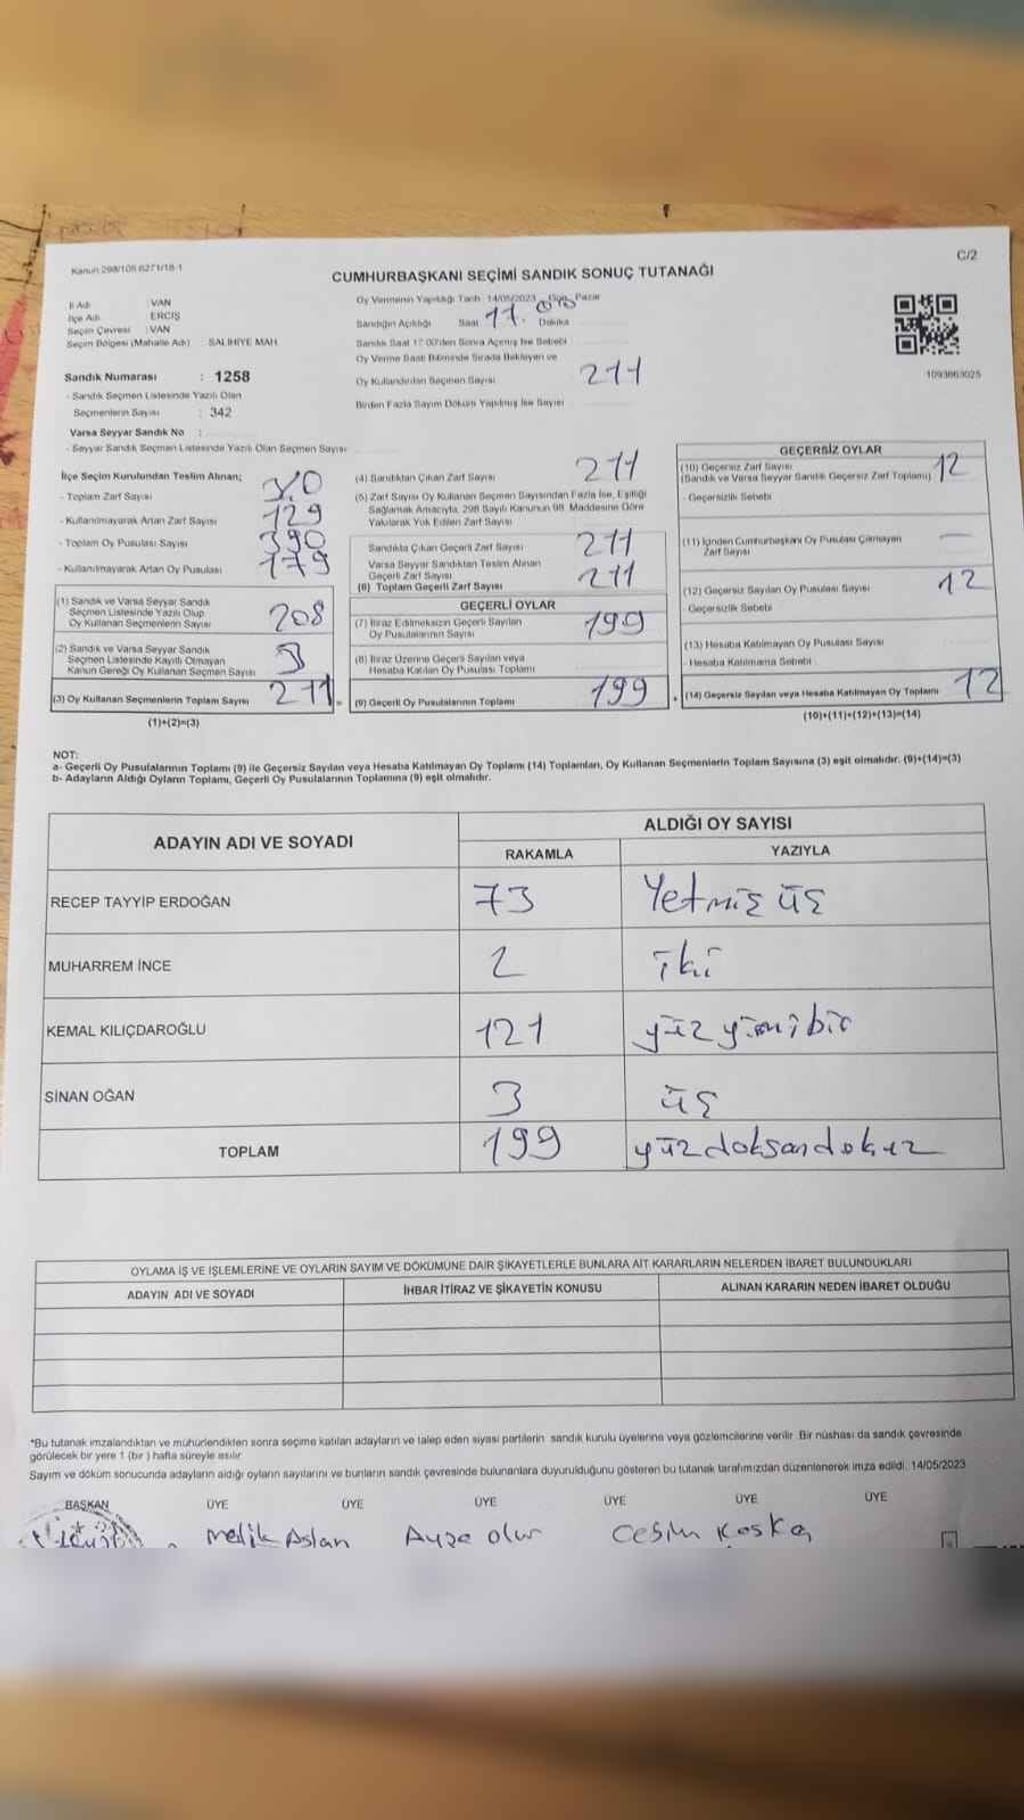 Kanun 298/105 6271/18-1
C/2
CUMHURBAŞKANI SEÇİMİ SANDIK SONUÇ TUTANAĞI
İl Adı : VAN
İlçe Adı : ERCİŞ
Seçim Çevresi : VAN
Seçim Bölgesi (Mahalle Adı) : SALİHİYE MAH.
Sandık Numarası : 1258
- Sandık Seçmen Listesinde Yazılı Olan
Seçmenlerin Sayısı : 342
Varsa Seyyar Sandık No :
- Seyyar Sandık Seçmen Listesinde Yazılı Olan Seçmen Sayısı
Oy Vermenin Yapıldığı Tarih 14/05/2023 Gün Pazar
Sandığın Açıldığı Saat 17. Dakika
Sandık Saat 17.00'den Sonra Açılmış İse Sebebi
Oy Verme Saati Bitiminde Sırada Bekleyen ve
Oy Kullandırılan Seçmen Sayısı 211
Birden Fazla Sayım Döküm Yapılmış İse Sayısı
1093863025
İlçe Seçim Kurulundan Teslim Alınan;
- Toplam Zarf Sayısı
- Kullanılmayarak Artan Zarf Sayısı 129
- Toplam Oy Pusulası Sayısı 390
- Kullanılmayarak Artan Oy Pusulası 179
(1) Sandık ve Varsa Seyyar Sandık
Seçmen Listesinde Yazılı Olup
Oy Kullanan Seçmenlerin Sayısı 208
(2) Sandık ve Varsa Seyyar Sandık
Seçmen Listesinde Kayıtlı Olmayan
Kanun Gereği Oy Kullanan Seçmen Sayısı 3
(3) Oy Kullanan Seçmenlerin Toplam Sayısı 211
(1)+(2)=(3)
(4) Sandıktan Çıkan Zarf Sayısı 211
(5) Zarf Sayısı Oy Kullanan Seçmen Sayısından Fazla İse, Eşitliği
Sağlamak Amacıyla, 298 Sayılı Kanunun 98. Maddesine Göre
Yakılarak Yok Edilen Zarf Sayısı
Sandıkta Çıkan Geçerli Zarf Sayısı 211
Varsa Seyyar Sandıktan Teslim Alınan
Geçerli Zarf Sayısı
(6) Toplam Geçerli Zarf Sayısı 211
GEÇERLİ OYLAR
(7) İtiraz Edilmeksizin Geçerli Sayılan
Oy Pusulalarının Sayısı 199
(8) İtiraz Üzerine Geçerli Sayılan veya
Hesaba Katılan Oy Pusulası Toplamı
(9) Geçerli Oy Pusulalarının Toplamı 199
GEÇERSİZ OYLAR
(10) Geçersiz Zarf Sayısı
(Sandık ve Varsa Seyyar Sandık Geçersiz Zarf Toplamı) 12
- Geçersizlik Sebebi
(11) İçinden Cumhurbaşkanı Oy Pusulası Çıkmayan
Zarf Sayısı —
(12) Geçersiz Sayılan Oy Pusulası Sayısı 12
- Geçersizlik Sebebi
(13) Hesaba Katılmayan Oy Pusulası Sayısı
- Hesaba Katılmama Sebebi
(14) Geçersiz Sayılan veya Hesaba Katılmayan Oy Toplamı 12
(10)+(11)+(12)+(13)=(14)
NOT:
a- Geçerli Oy Pusulalarının Toplamı (9) ile Geçersiz Sayılan veya Hesaba Katılmayan Oy Toplamı (14) Toplamları, Oy Kullanan Seçmenlerin Toplam Sayısına (3) eşit olmalıdır. (9)+(14)=(3)
b- Adayların Aldığı Oyların Toplamı, Geçerli Oy Pusulalarının Toplamına (9) eşit olmalıdır.
ADAYIN ADI VE SOYADI
ALDIĞI OY SAYISI
RAKAMLA YAZIYLA
RECEP TAYYİP ERDOĞAN 73 Yetmiş üş
MUHARREM İNCE 2 iki
KEMAL KILIÇDAROĞLU 121 yüz yirmi bir
SİNAN OĞAN 3 üş
TOPLAM 199 yüzdoksandokuz
OYLAMA İŞ VE İŞLEMLERİNE VE OYLARIN SAYIM VE DÖKÜMÜNE DAİR ŞİKAYETLERLE BUNLARA AİT KARARLARIN NELERDEN İBARET BULUNDUKLARI
ADAYIN ADI VE SOYADI İHBAR İTİRAZ VE ŞİKAYETİN KONUSU ALINAN KARARIN NEDEN İBARET OLDUĞU
*Bu tutanak imzalandıktan ve mühürlendikten sonra seçime katılan adayların ve talep eden siyasi partilerin sandık kurulu üyelerine veya gözlemcilerine verilir. Bir nüshası da sandık çevresinde
görülecek bir yere 1 (bir ) hafta süreyle asılır.
Sayım ve döküm sonucunda adayların aldığı oyların sayılarını ve bunların sandık çevresinde bulunanlara duyurulduğunu gösteren bu tutanak tarafımızdan düzenlenerek imza edildi. 14/05/2023
BAŞKAN ÜYE ÜYE ÜYE ÜYE ÜYE ÜYE
Melik Aslan Ayşe olur Cesim Koska